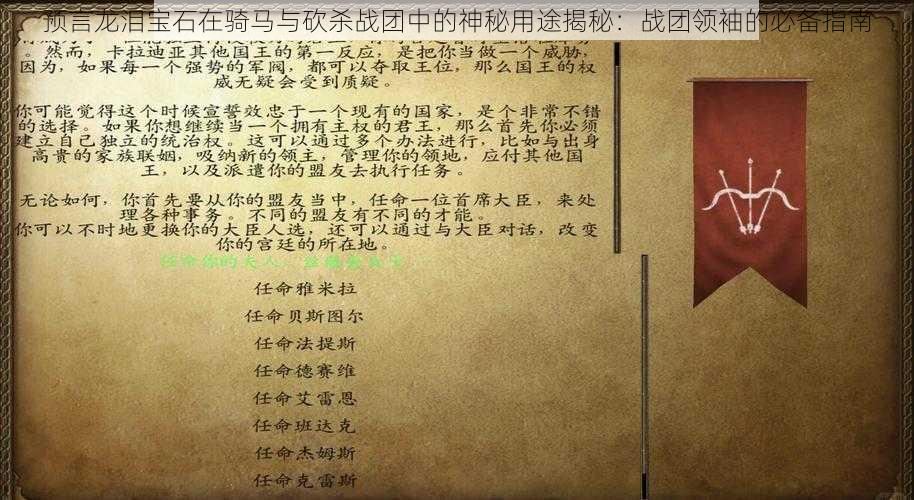 预言龙泪宝石在骑马与砍杀战团中的神秘用途揭秘：战团领袖的必备指南
。然而，卡拉迪亚其他国王的第一反应，是把你当做一个威胁，
因为，如果每一个强势的军阀，都可以夺取王位，那么国王的权
威无疑会受到质疑。
你可能觉得这个时候宣誓效忠于一个现有的国家，是个非常不错
的选择。如果你想继续当一个拥有主权的君王，那么首先你必须
建立自己独立的统治权。这可以通过多个办法进行，比如与出身
高贵的家族联姻，吸纳新的领主，管理你的领地，应付其他国
王，以及派遣你的盟友去执行任务。
无论如何，你首先要从你的盟友当中，任命一位首席大臣，来处
理各种事务。不同的盟友有不同的才能。
你可以不时地更换你的大臣人选，还可以通过与大臣对话，改变
你的宫廷的所在地。
任命你的夫人，
任命雅米拉
任命贝斯图尔
任命法提斯
任命德赛维
任命艾雷恩
任命班达克
任命杰姆斯
任命克雷斯